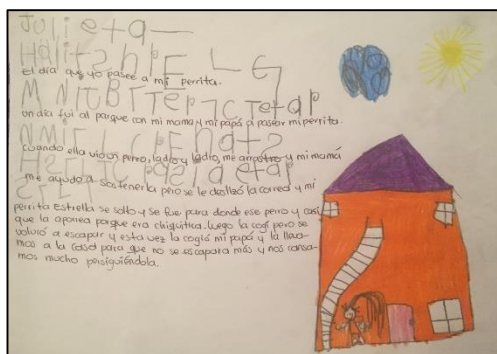 Julieta
HalitshpE L G
el día que yo pasee a mi perrita.
M NITBTTEP7CTetap
un día fui al parque con mi mama y mi papá a pasear mi perrita.
NMTLCPEhats
cuando ella vio un perro, ladro y ladro, me arrastro y mi mamá
me ayudo a sostenerla pero se le deslizó la correa y mi
perrita estrella se solto y se fue para donde ese perro y casi
que la aporrea porque era chiquitica. luego la cogí pero se
volvió a escapar y esta vez la cogió mi papá y la lleva-
mos a la casa para que no se escapara más y nos cansa-
mos mucho persiguiéndola.